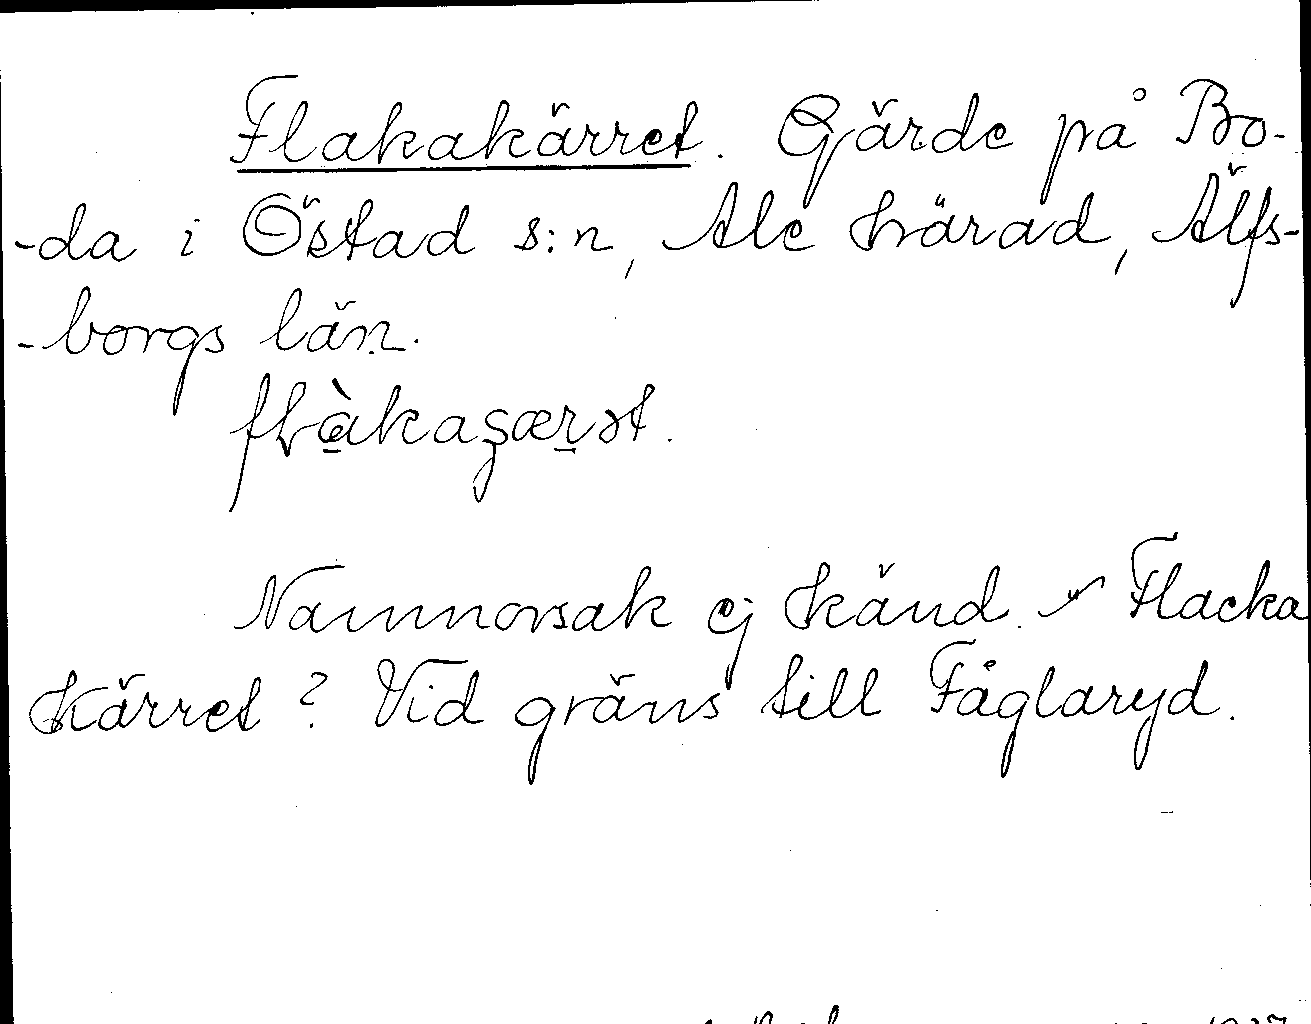 Flakakärret. Gärde på Bo-
-da i Östad s:n, Ale härad, Älfs-
-borgs län.
flàkaʂærət.
Namnorsak ej känd. Flacka
kärret? Vid gräns till Fåglaryd.